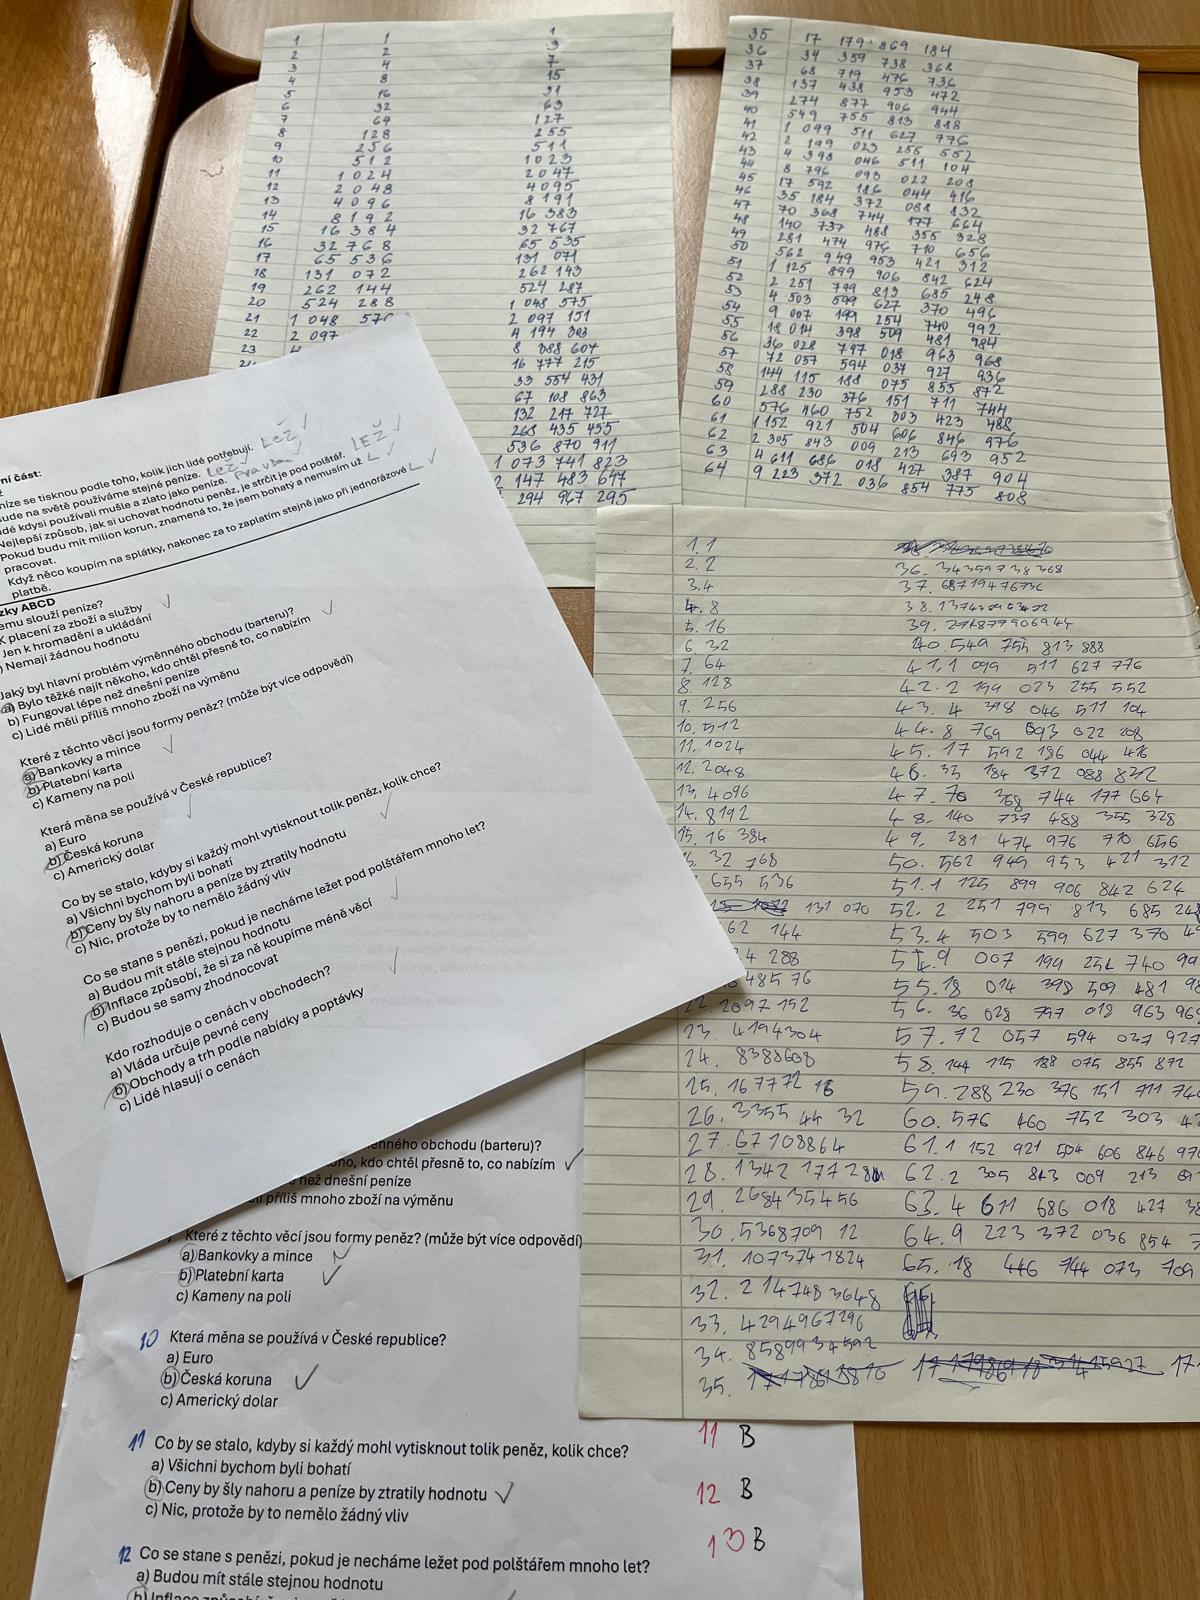 1 1 1
2 2 3
3 4 7
4 8 15
5 16 31
6 32 63
7 64 127
8 128 255
9 256 511
10 512 1023
11 1024 2047
12 2048 4095
13 4096 8191
14 8192 16 383
15 16 384 32 767
16 32 768 65 535
17 65 536 131 071
18 131 072 262 143
19 262 144 524 287
20 524 288 1 048 575
21 1 048 576 2 097 151
22 2 097 4 194 303
23 8 388 607
16 777 215
33 554 431
67 108 863
132 217 727
268 435 455
536 870 911
1 073 741 823
2 147 483 647
294 967 295
35 17 179 869 184
36 34 359 738 368
37 68 719 476 736
38 137 438 953 472
39 274 877 906 944
40 549 755 813 888
41 1 099 511 627 776
42 2 199 023 255 552
43 4 398 046 511 104
44 8 796 093 022 208
45 17 592 186 044 416
46 35 184 372 088 832
47 70 368 744 177 664
48 140 737 488 355 328
49 281 474 976 710 656
50 562 949 953 421 312
51 1 125 899 906 842 624
52 2 251 799 813 685 248
53 4 503 599 627 370 496
54 9 007 199 254 740 992
55 18 014 398 509 481 984
56 36 028 797 018 963 968
57 72 057 594 037 927 936
58 144 115 188 075 855 872
59 288 230 376 151 711 744
60 576 460 752 303 423 488
61 1 152 921 504 606 846 976
62 2 305 843 009 213 693 952
63 4 611 686 018 427 387 904
64 9 223 372 036 854 775 808
ní část:
níze se tisknou podle toho, kolik jich lidé potřebují. Lež
ude na světě používáme stejné peníze. Lež
idé kdysi používali mušle a zlato jako peníze. Pravda
Nejlepší způsob, jak si uchovat hodnotu peněz, je strčit je pod polštář. LEŽ
Pokud budu mít milion korun, znamená to, že jsem bohatý a nemusím už L
pracovat.
Když něco koupím na splátky, nakonec za to zaplatím stejně jako při jednorázové L
platbě.
zky ABCD
emu slouží peníze?
K placení za zboží a služby
Jen k hromadění a ukládání
) Nemají žádnou hodnotu
Jaký byl hlavní problém výměnného obchodu (barteru)?
a) Bylo těžké najít někoho, kdo chtěl přesně to, co nabízím
b) Fungoval lépe než dnešní peníze
c) Lidé měli příliš mnoho zboží na výměnu
Které z těchto věcí jsou formy peněz? (může být více odpovědí)
a) Bankovky a mince
b) Platební karta
c) Kameny na poli
Která měna se používá v České republice?
a) Euro
b) Česká koruna
c) Americký dolar
Co by se stalo, kdyby si každý mohl vytisknout tolik peněz, kolik chce?
a) Všichni bychom byli bohatí
b) Ceny by šly nahoru a peníze by ztratily hodnotu
c) Nic, protože by to nemělo žádný vliv
Co se stane s penězi, pokud je necháme ležet pod polštářem mnoho let?
a) Budou mít stále stejnou hodnotu
b) Inflace způsobí, že si za ně koupíme méně věcí
c) Budou se samy zhodnocovat
Kdo rozhoduje o cenách v obchodech?
a) Vláda určuje pevné ceny
b) Obchody a trh podle nabídky a poptávky
c) Lidé hlasují o cenách
1. 1
2. 2
3. 4
4. 8
5. 16
6. 32
7. 64
8. 128
9. 256
10. 512
11. 1024
12. 2048
13. 4096
14. 8192
15. 16 384
32 768
655 536
131 070
62 144
4 288
485 76
22. 2097 152
23. 4194304
24. 8388608
25. 167772 16
26. 3355 44 32
27. 67108864
28. 1342 17728
29. 268435456
30. 5368709 12
31. 1073741824
32. 2147483648
33. 4294967296
34. 8589934592
35.
36. 34359738368
37. 68719476736
38.
39.
40. 549 755 813 888
41. 1 099 511 627 776
42. 2 199 023 255 552
43. 4 398 046 511 104
44. 8 769 093 022 208
45. 17 592 186 044 416
46. 35 184 372 088 832
47. 70 368 744 177 664
48. 140 737 488 355 328
49. 281 474 976 710 656
50. 562 949 953 421 312
51. 1 125 899 906 842 624
52. 2 251 799 813 685 248
53. 4 503 599 627 370 49
54. 9 007 199 254 740 99
55. 18 014 398 509 481 98
56. 36 028 797 018 963 968
57. 72 057 594 037 927
58. 144 115 188 075 855 872
59. 288 230 376 151 711 744
60. 576 460 752 303 42
61. 1 152 921 504 606 846 976
62. 2 305 843 009 213 69
63. 4 611 686 018 427 38
64. 9 223 372 036 854 7
65. 18 446 744 073 709
17
nného obchodu (barteru)?
oho, kdo chtěl přesně to, co nabízím
než dnešní peníze
i příliš mnoho zboží na výměnu
Které z těchto věcí jsou formy peněz? (může být více odpovědí)
a) Bankovky a mince
b) Platební karta
c) Kameny na poli
10 Která měna se používá v České republice?
a) Euro
b) Česká koruna
c) Americký dolar
11 Co by se stalo, kdyby si každý mohl vytisknout tolik peněz, kolik chce?
a) Všichni bychom byli bohatí
b) Ceny by šly nahoru a peníze by ztratily hodnotu
c) Nic, protože by to nemělo žádný vliv
12 Co se stane s penězi, pokud je necháme ležet pod polštářem mnoho let?
a) Budou mít stále stejnou hodnotu
b) Inflace způsobí, že si za ně koupíme méně věcí
11 B
12 B
13 B